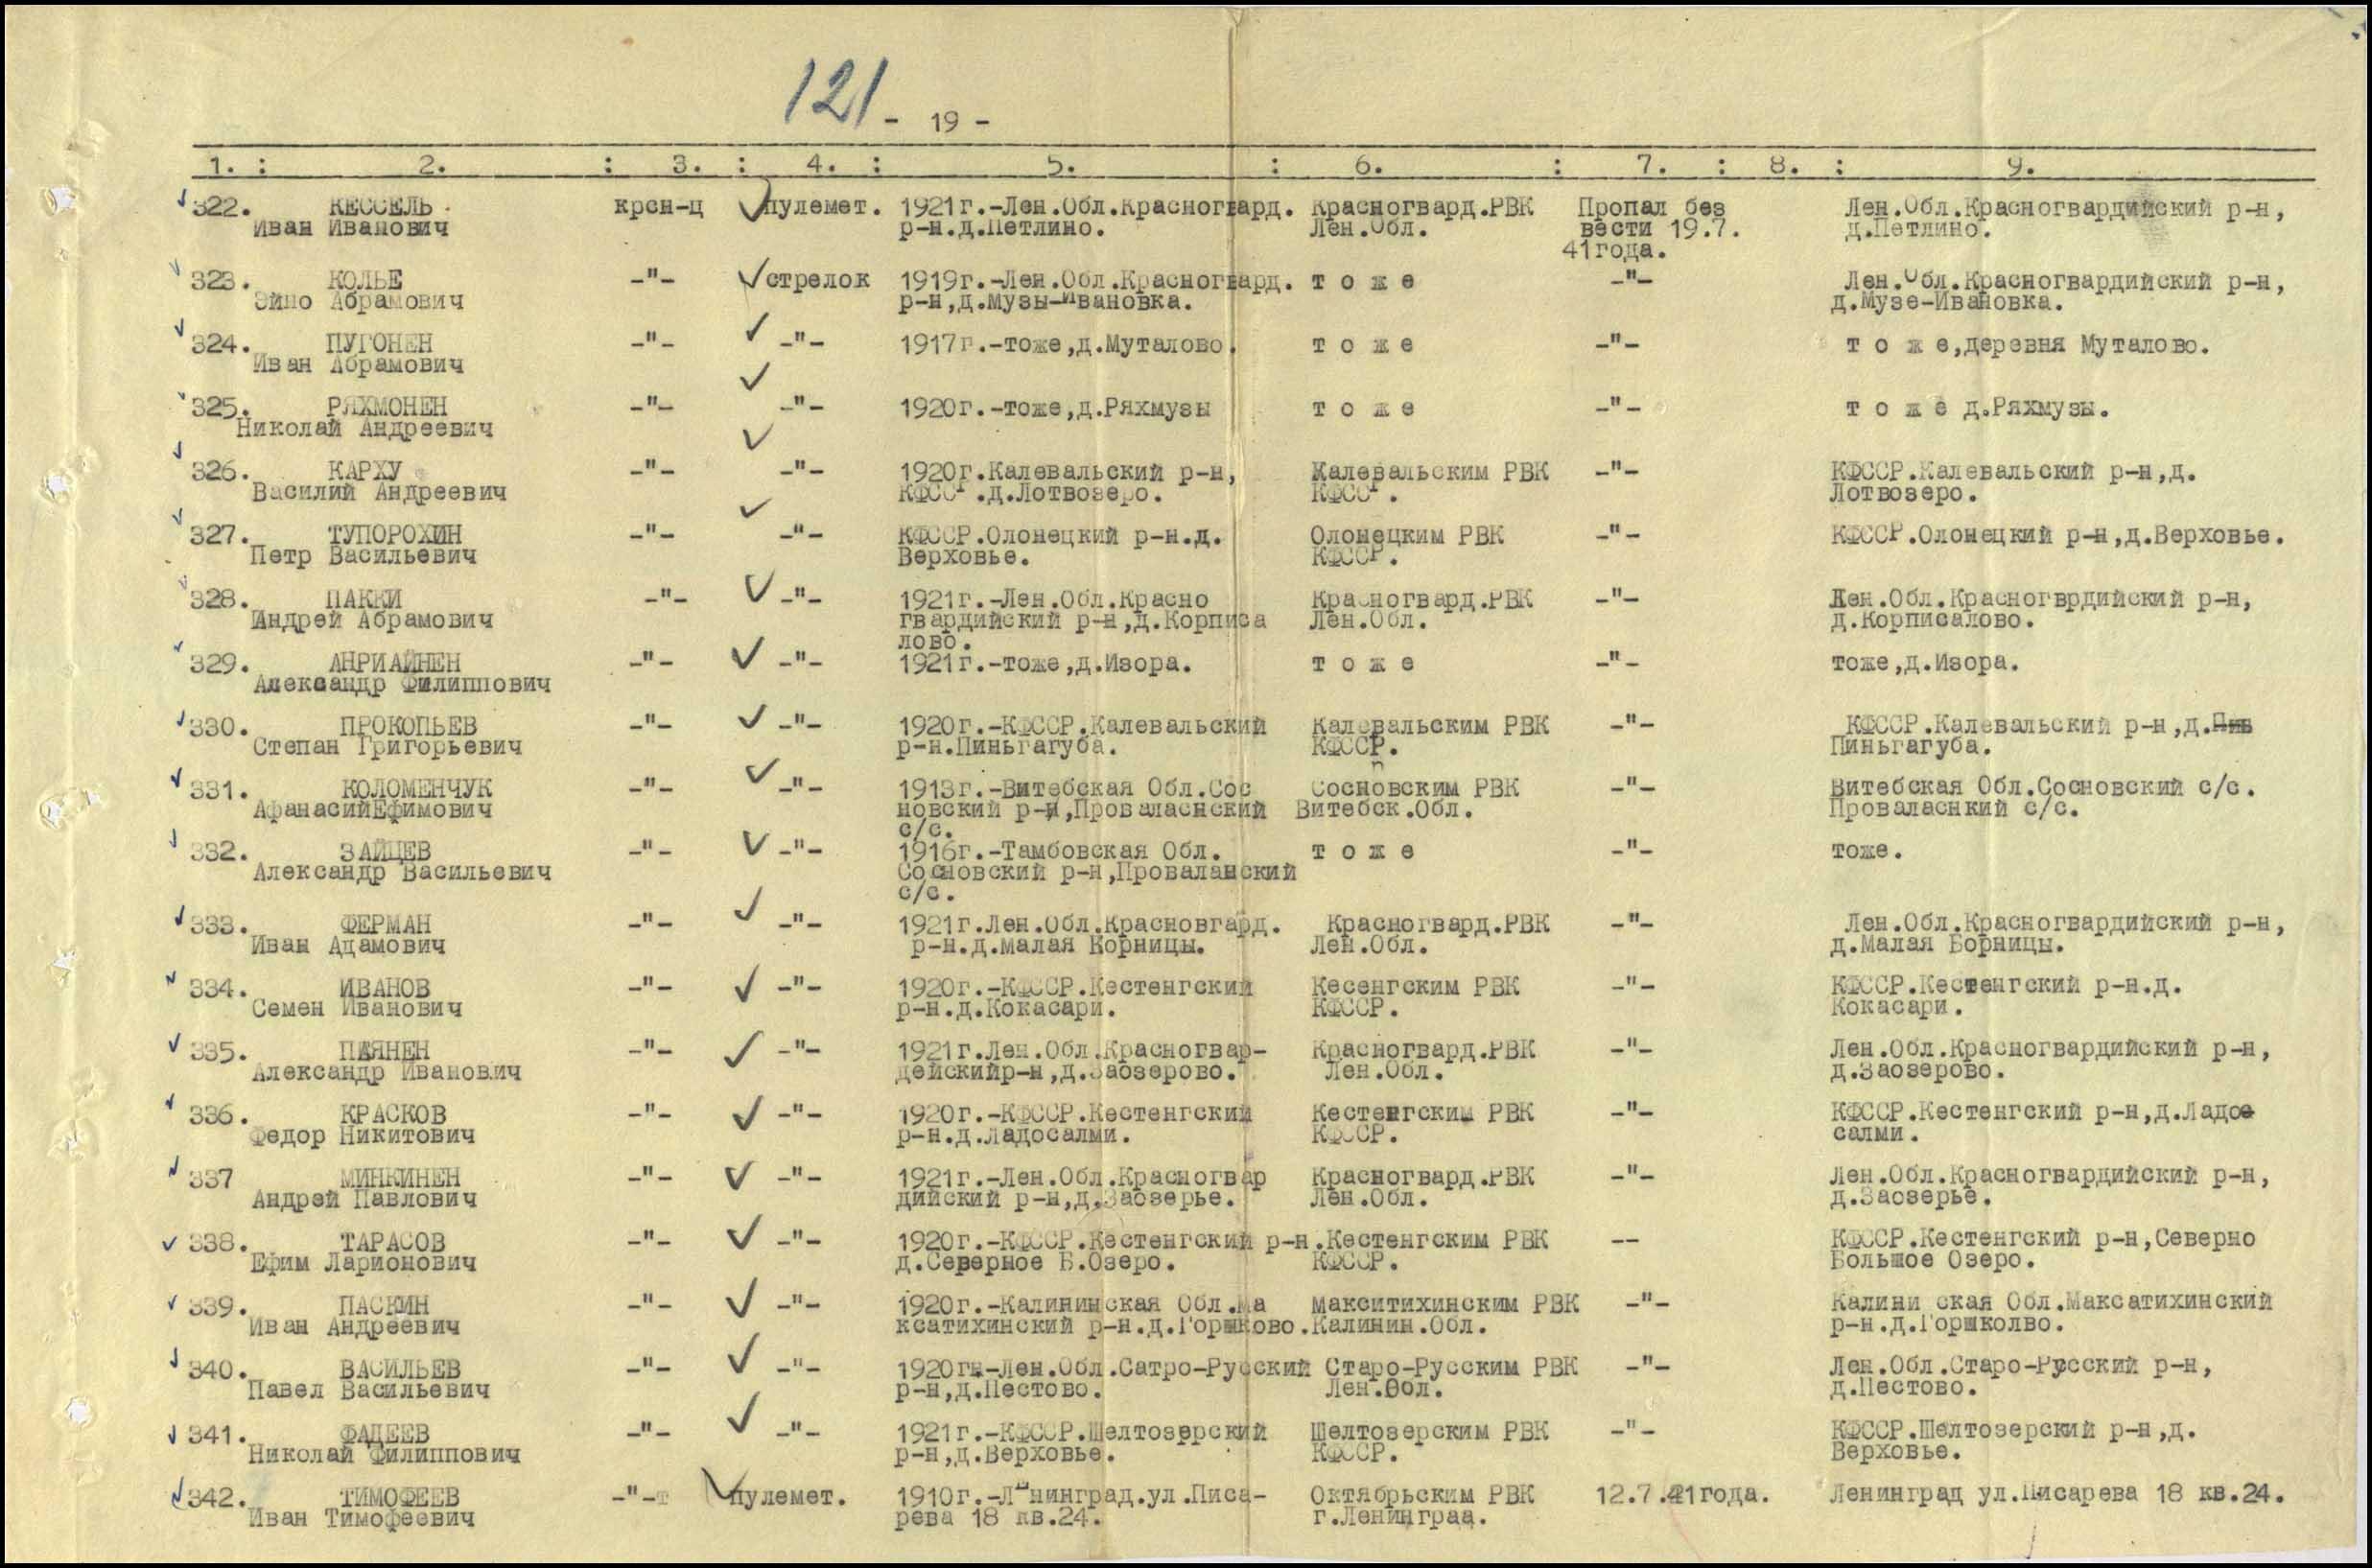 121
- 19 -
1. : 2. : 3. : 4. : 5. : 6. : 7. : 8. : 9.
322. КЕССЕЛЬ крсн-ц пулемет. 1921г.-Лен.Обл.Красногвард. Красногвард.РВК Пропал без Лен.Обл.Красногвардийский р-н,
Иван Иванович р-н.д.Петлино. Лен.Обл. вести 19.7. д.Петлино.
41года.
323. КОЛЬЕ -"- стрелок 1919г.-Лен.Обл.Красногвард. т о ж е -"- Лен.Обл.Красногвардийский р-н,
Эйно Абрамович р-н,д.Музы-Ивановка. д.Музе-Ивановка.
324. ПУГОНЕН -"- -"- 1917г.-тоже,д.Муталово. т о ж е -"- т о ж е,деревня Муталово.
Иван Абрамович
325. РЯХМОНЕН -"- -"- 1920г.-тоже,д.Ряхмузы т о ж е -"- т о ж е д.Ряхмузы.
Николай Андреевич
326. КАРХУ -"- -"- 1920г.Калевальский р-н, Калевальским РВК -"- КФССР.Калевальский р-н,д.
Василий Андреевич КФССР.д.Лотвозеро. КФССР. Лотвозеро.
327. ТУПОРОХИН -"- -"- КФССР.Олонецкий р-н.д. Олонецким РВК -"- КФССР.Олонецкий р-н,д.Верховье.
Петр Васильевич Верховье. КФССР.
328. ПАККИ -"- -"- 1921г.-Лен.Обл.Красно Красногвард.РВК -"- Лен.Обл.Красногврдийский р-н,
Андрей Абрамович гвардийский р-н,д.Корписа Лен.Обл. д.Корписалово.
лово.
329. АНРИАЙНЕН -"- -"- 1921г.-тоже,д.Изора. т о ж е -"- тоже,д.Изора.
Александр Филиппович
330. ПРОКОПЬЕВ -"- -"- 1920г.-КФССР.Калевальский Калевальским РВК -"- КФССР.Калевальский р-н,д.Пин
Степан Григорьевич р-н.Пиньгагуба. КФССР. Пиньгагуба.
331. КОЛОМЕНЧУК -"- -"- 1913г.-Витебская Обл.Сос Сосновским РВК -"- Витебская Обл.Сосновский с/с.
АфанасийЕфимович новский р-н,Проваласнский Витебск.Обл. Проваласнкий с/с.
с/с.
332. ЗАЙЦЕВ -"- -"- 1916г.-Тамбовская Обл. т о ж е -"- тоже.
Александр Васильевич Сосновский р-н,Проваланский
с/с.
333. ФЕРМАН -"- -"- 1921г.Лен.Обл.Красновгард. Красногвард.РВК -"- Лен.Обл.Красногвардийский р-н,
Иван Адамович р-н.д.Малая Корницы. Лен.Обл. д.Малая Борницы.
334. ИВАНОВ -"- -"- 1920г.-КФССР.Кестенгский Кесенгским РВК -"- КФССР.Кестенгский р-н.д.
Семен Иванович р-н.д.Кокасари. КФССР. Кокасари.
335. ПАЯНЕН -"- -"- 1921г.Лен.Обл.Красногвар- Красногвард.РВК -"- Лен.Обл.Красногвардийский р-н,
Александр Иванович дейскийр-н,д.Заозерово. Лен.Обл. д.Заозерово.
336. КРАСКОВ -"- -"- 1920г.-КФССР.Кестенгский Кестенгским РВК -"- КФССР.Кестенгский р-н,д.Ладос
Федор Никитович р-н.д.Ладосалми. КФССР. салми.
337 МИНКИНЕН -"- -"- 1921г.-Лен.Обл.Красногвар Красногвард.РВК -"- Лен.Обл.Красногвардийский р-н,
Андрей Павлович дийский р-н,д.Заозерье. Лен.Обл. д.Заозерье.
338. ТАРАСОВ -"- -"- 1920г.-КФССР.Кестенгский р-н.Кестенгским РВК -- КФССР.Кестенгский р-н,Северно
Ефим Ларионович д.Северное Б.Озеро. КФССР. Большое Озеро.
339. ПАСКИН -"- -"- 1920г.-Калининская Обл.Ма Макситихинским РВК -"- Калини ская Обл.Максатихинский
Иван Андреевич ксатихинский р-н.д.Горшково.Калинин.Обл. р-н.д.Горшколво.
340. ВАСИЛЬЕВ -"- -"- 1920гн-Лен.Обл.Сатро-Русский Старо-Русским РВК -"- Лен.Обл.Старо-Русский р-н,
Павел Васильевич р-н,д.Пестово. Лен.Обл. д.Пестово.
341. ФАДЕЕВ -"- -"- 1921г.-КФССР.Шелтозерский Шелтозерским РВК -"- КФССР.Шелтозерский р-н,д.
Николай Филиппович р-н,д.Верховье. КФССР. Верховье.
342. ТИМОФЕЕВ -"-т пулемет. 1910г.-Ленинград.ул.Писа- Октябрьским РВК 12.7.41года. Ленинград ул.Писарева 18 кв.24.
Иван Тимофеевич рева 18 кв.24. г.Ленинград.